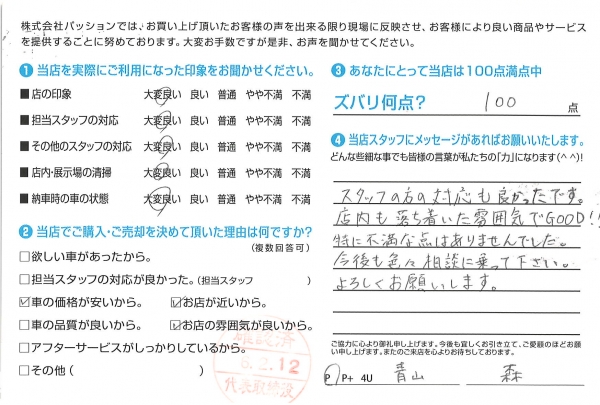 株式会社パッションでは、お買い上げ頂いたお客様の声を出来る限り現場に反映させ、お客様により良い商品やサービス
を提供することに努めております。大変お手数ですが是非、お声を聞かせてください。
❶ 当店を実際にご利用になった印象をお聞かせください。
■店の印象 大変良い 良い 普通 やや不満 不満
■担当スタッフの対応 大変良い 良い 普通 やや不満 不満
■その他のスタッフの対応 大変良い 良い 普通 やや不満 不満
■店内・展示場の清掃 大変良い 良い 普通 やや不満 不満
■納車時の車の状態 大変良い 良い 普通 やや不満 不満
❷ 当店でご購入・ご売却を決めて頂いた理由は何ですか?
(複数回答可)
□欲しい車があったから。
□担当スタッフの対応が良かった。(担当スタッフ )
☑車の価格が安いから。 ☑お店が近いから。
□車の品質が良いから。 ☑お店の雰囲気が良いから。
□アフターサービスがしっかりしているから。
□その他( )
確認済
6.2.12
代表取締役
❸ あなたにとって当店は100点満点中
ズバリ何点? 100 点
❹ 当店スタッフにメッセージがあればお願いいたします。
どんな些細な事でも皆様の言葉が私たちの「力」になります(^^)!
スタッフの方の対応も良かったです。
店内も落ち着いた雰囲気でGOOD!!
特に不満な点はありませんでした。
今後も色々相談に乗って下さい。
よろしくお願いします。
ご協力に心より御礼申し上げます。今後も宜しくお引き立て、ご愛顧のほどお願
い申し上げます。またのご来店を心よりお待ちしております。
P P+ 4U 青山 森